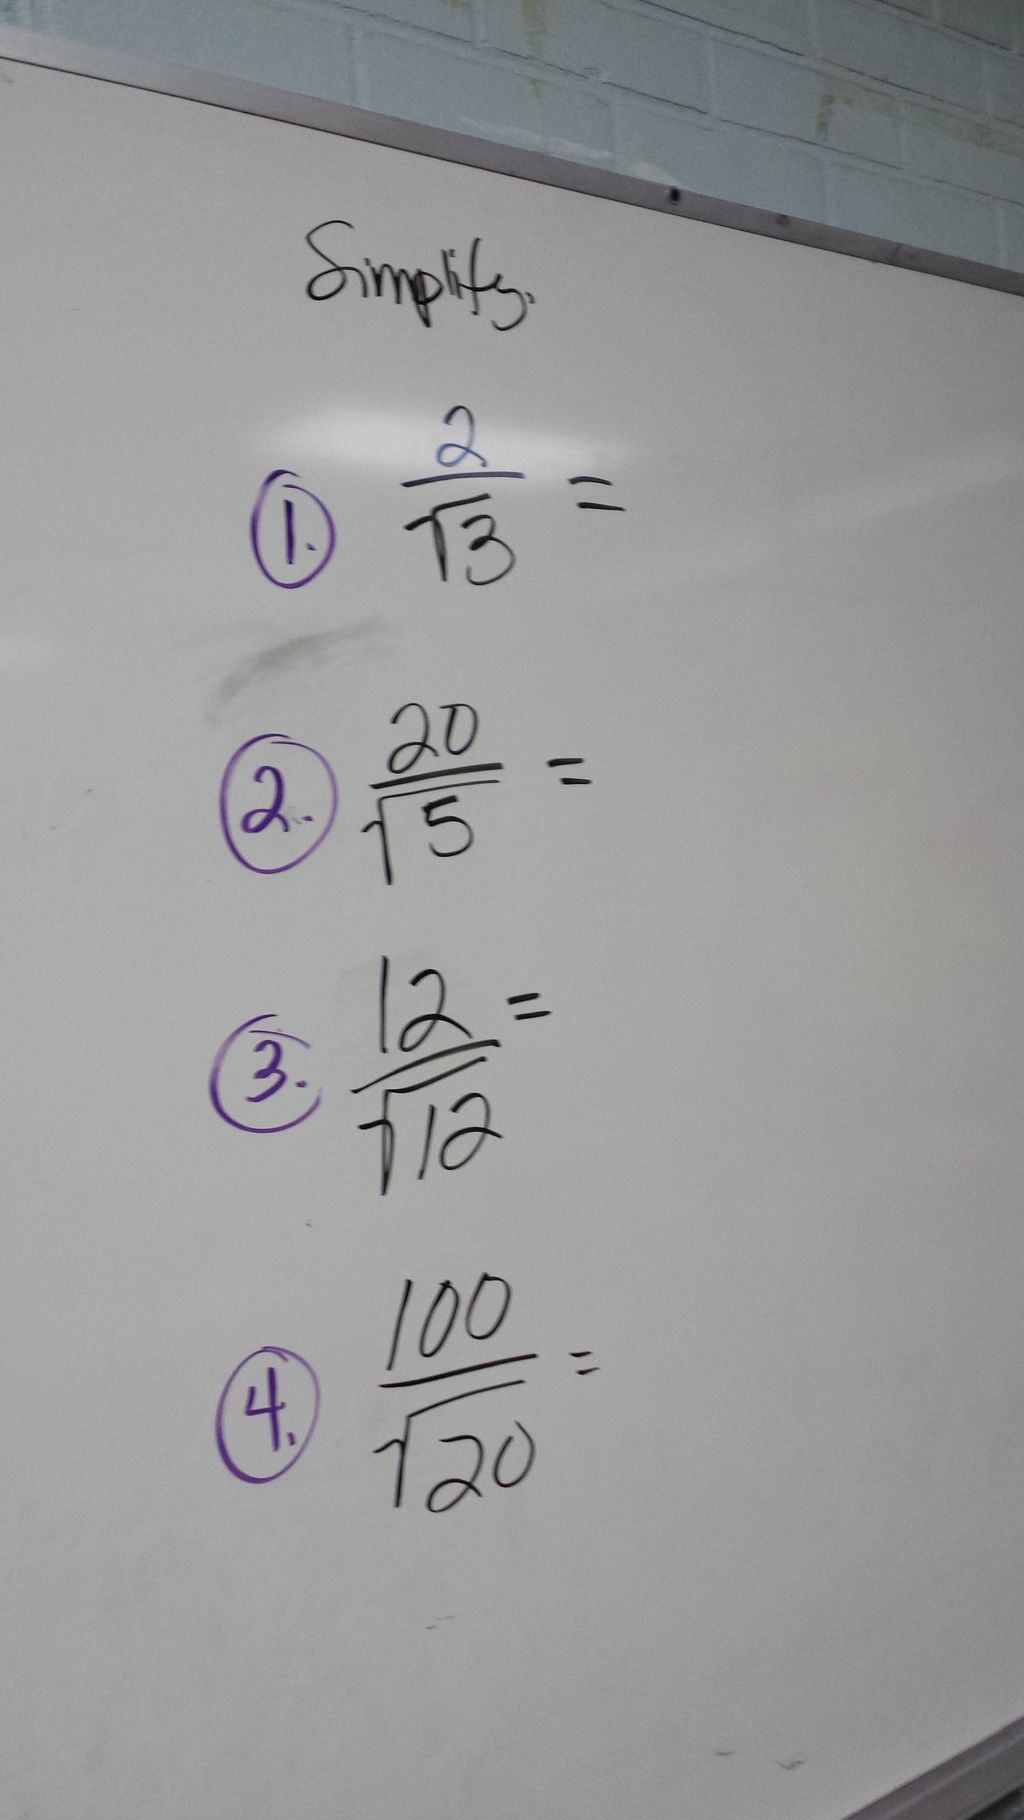 Simplify.
1. 2/√3 =
2. 20/√5 =
3. 12/√12 =
4. 100/√20 =